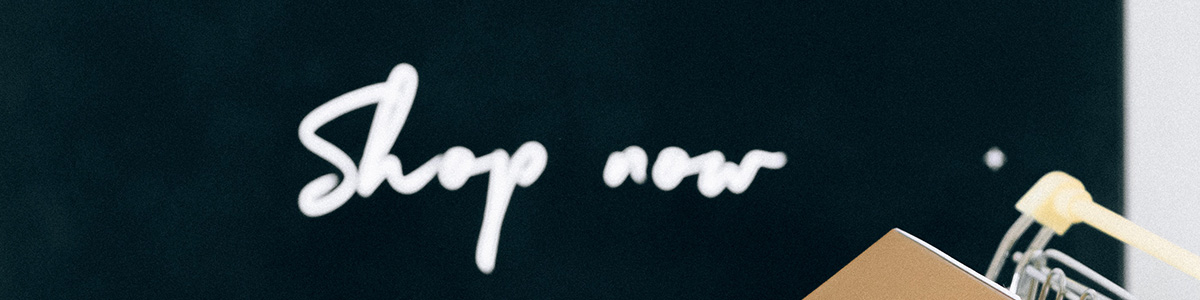 Shop now